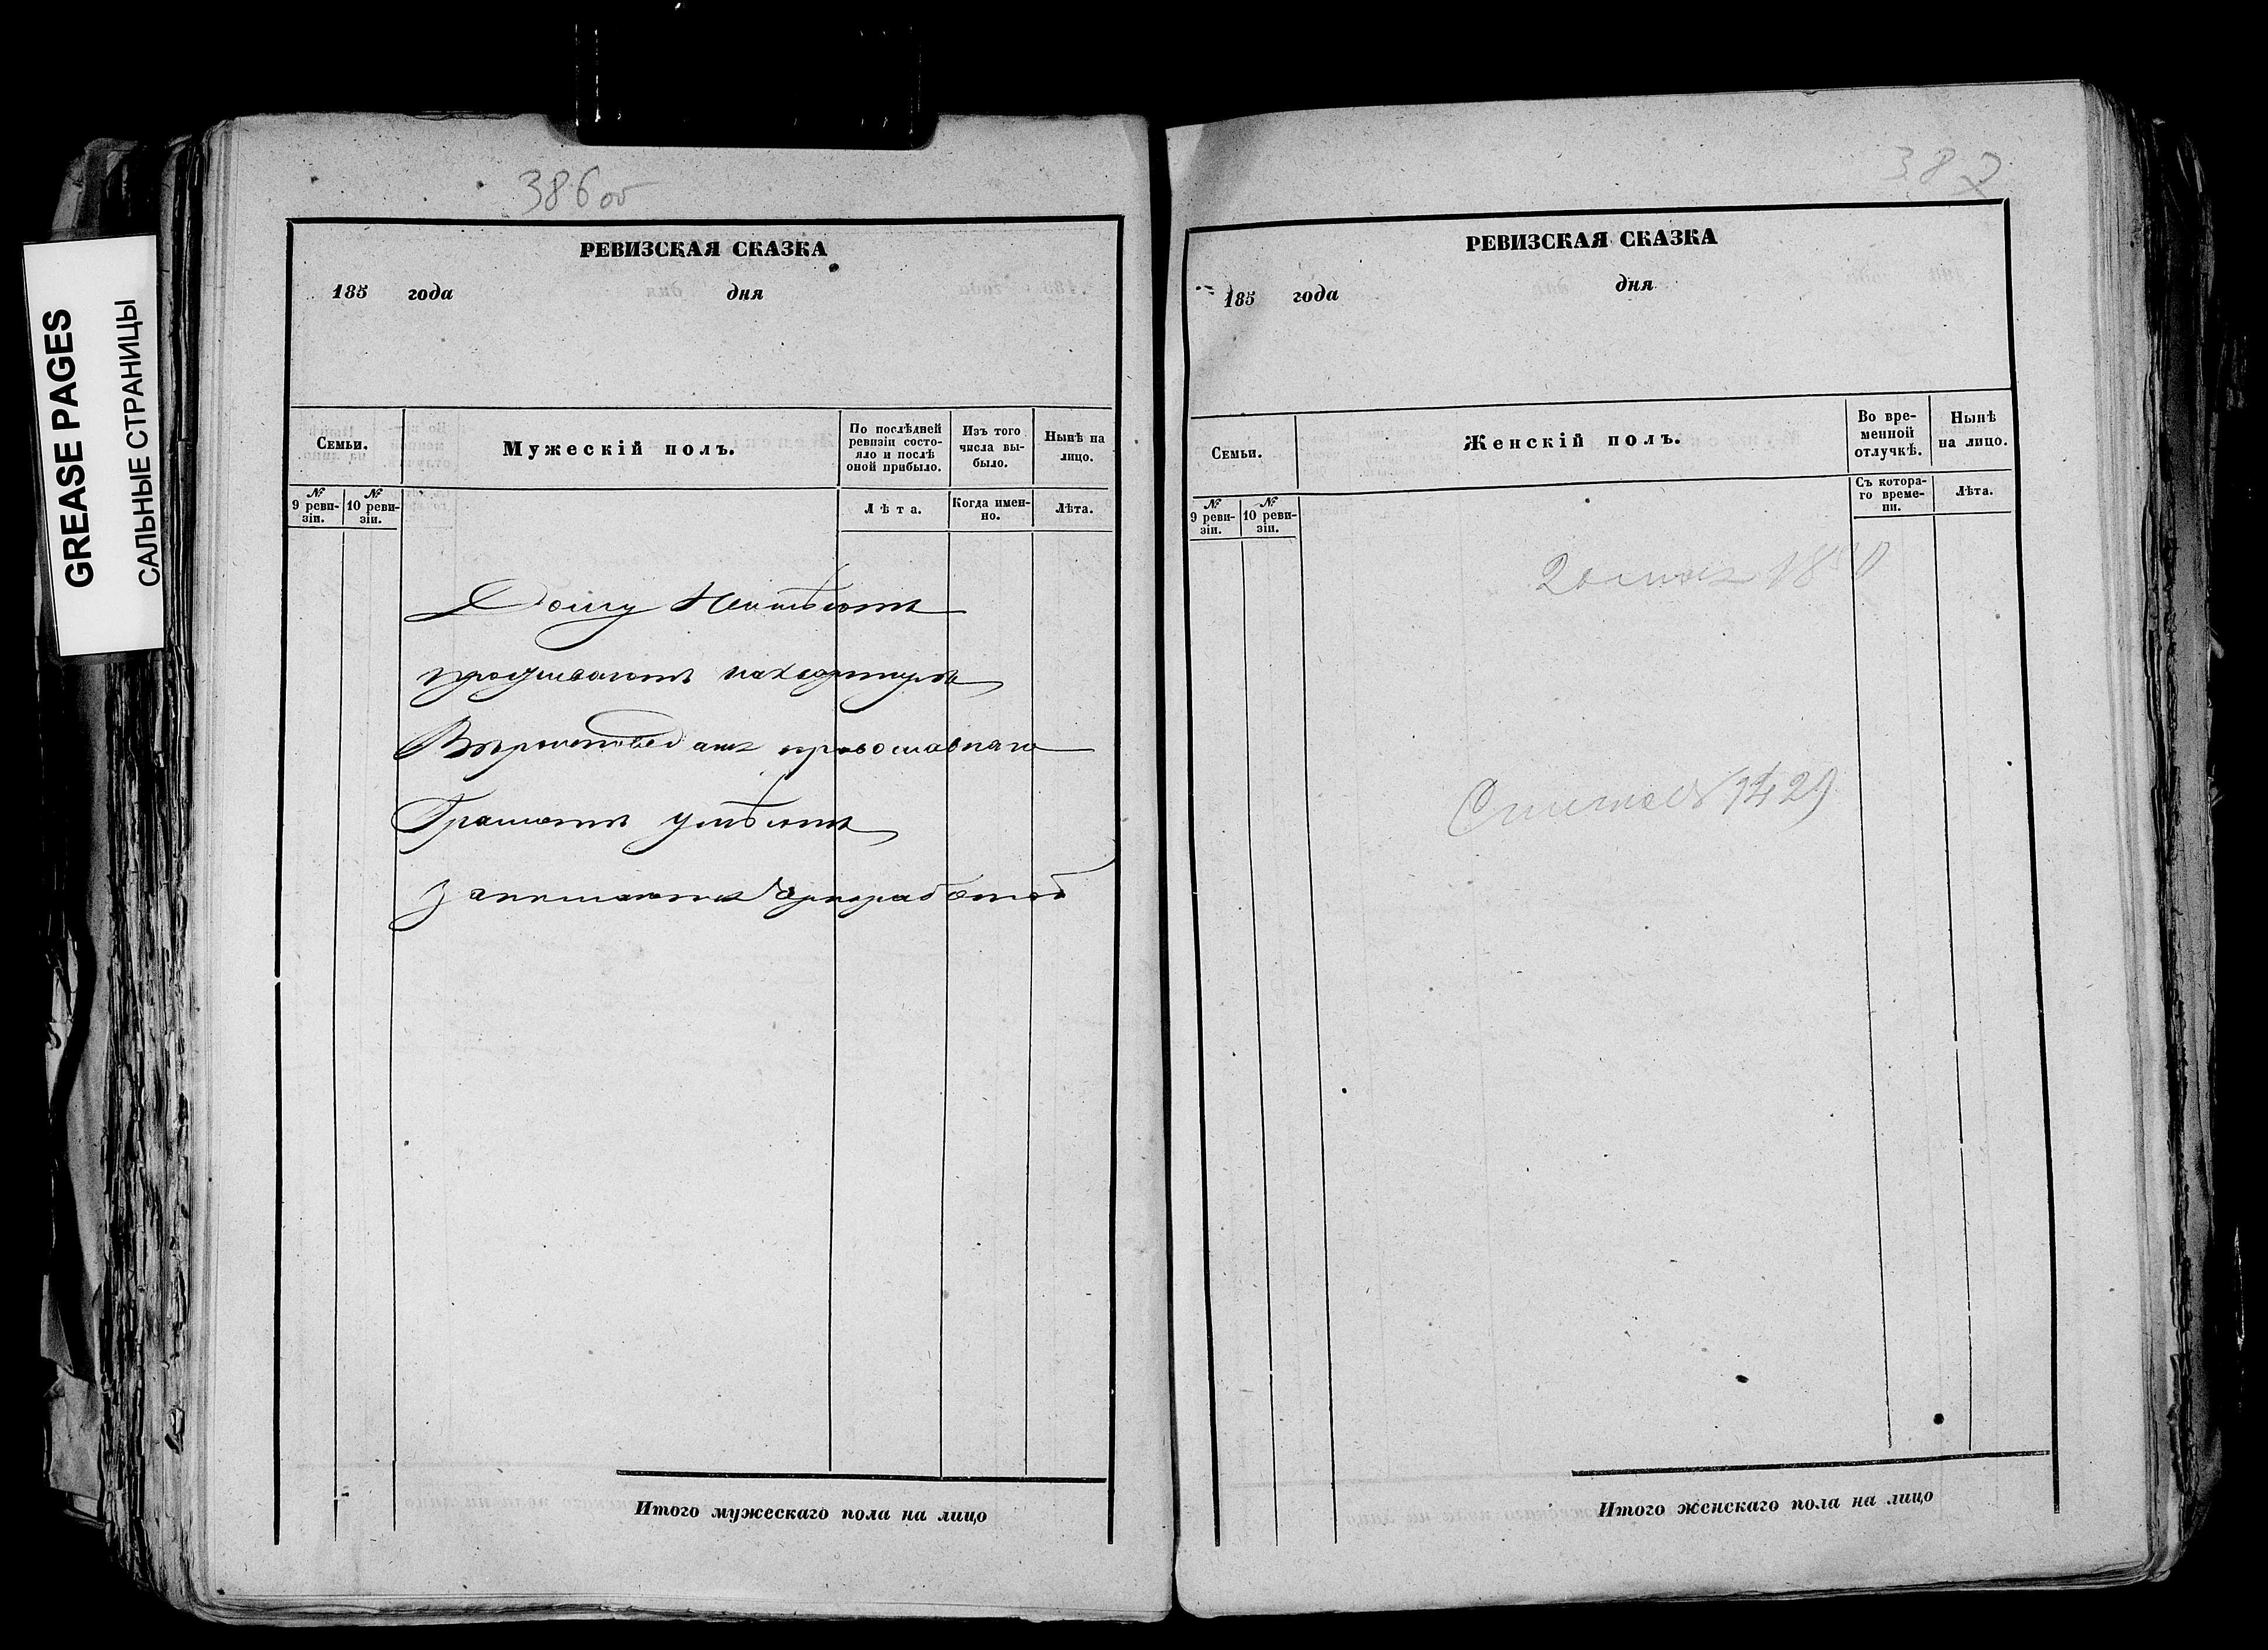 GREASE PAGES
САЛЬНЫЕ СТРАНИЦЫ
386 об
РЕВИЗСКАЯ СКАЗКА
185 года дня
Семьи.
Мужескій полъ.
По послѣдней ревизіи состояло и послѣ оной прибыло.
Изъ того числа выбыло.
Нынѣ на лицо.
№ 9 ревизіи.
№ 10 ревизіи.
Лѣта.
Когда именно.
Лѣта.
Дому Неимѣютъ
проживаютъ
Вѣроисповеданія православнаго
Грамотѣ умѣютъ
занимаются
Итого мужескаго пола на лицо
387
РЕВИЗСКАЯ СКАЗКА
185 года дня
Семьи.
Женскій полъ.
Во временной отлучкѣ.
Нынѣ на лицо.
№ 9 ревизіи.
№ 10 ревизіи.
Съ котораго времени.
Лѣта.
1429
Итого женскаго пола на лицо